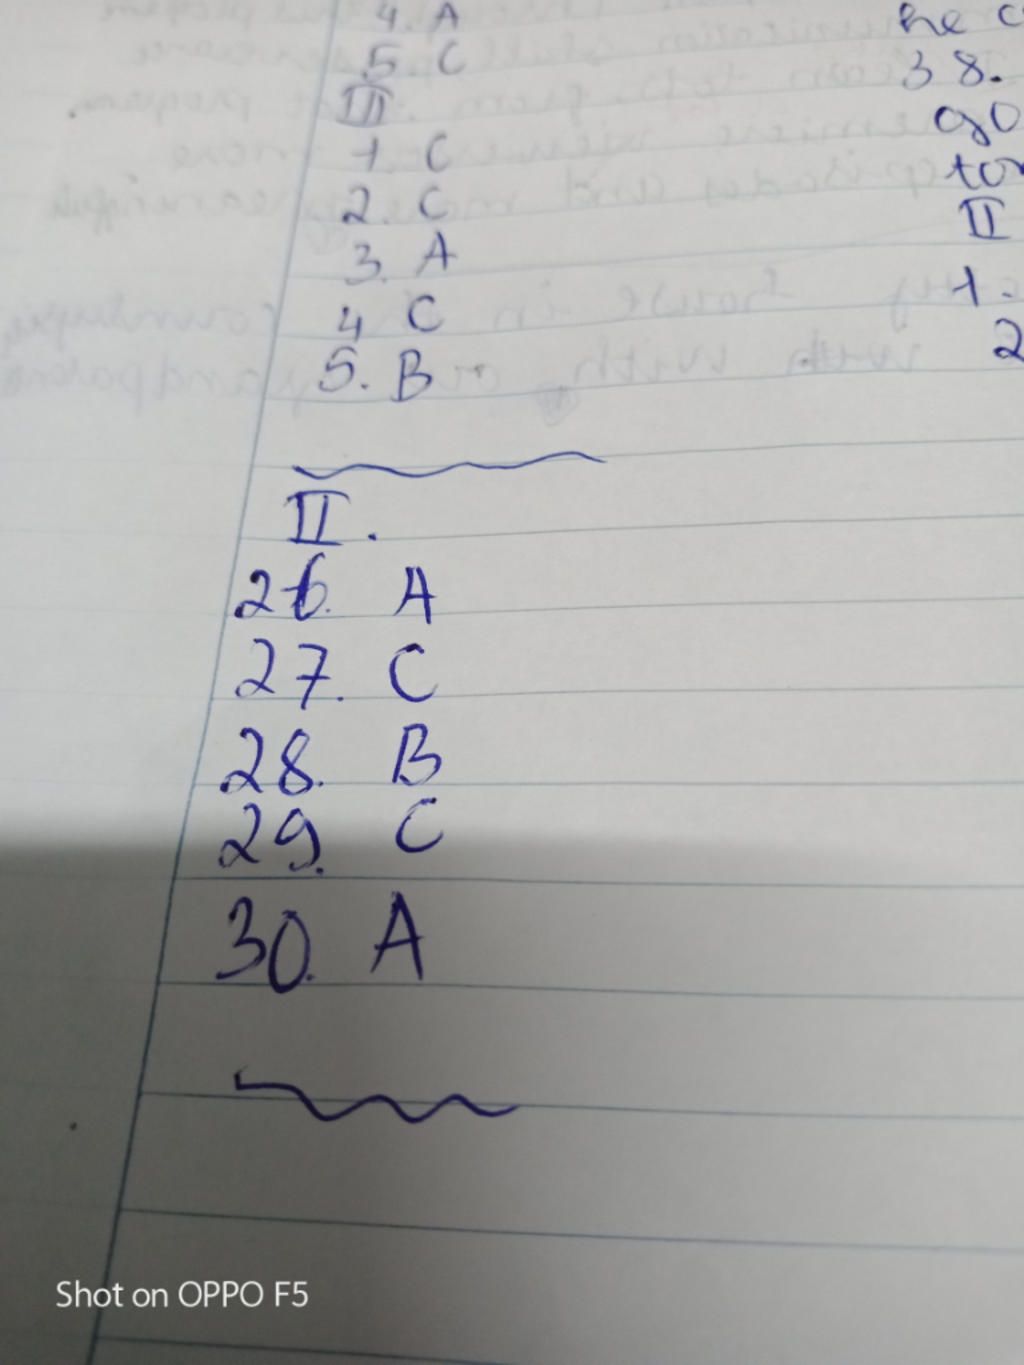 4. A
5 C
III
1. C
2. C
3. A
4 C
5. B
II.
26. A
27. C
28. B
29. C
30. A
he
38.
go
II
1.
2
Shot on OPPO F5